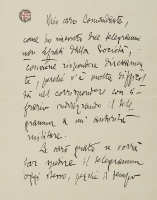 Mio caro Comandante,
come ho ricevuto dei telegrammi
non affatti dalla Società,
conviene rispondere direttamen-
te, perché v'è molta difficol-
tà nel corrispondere con o-
gramo indirizzando il tele
gramma a un' autorità
militare.
Le sarò grato se vorrà
far spedire il telegramma
oggi stesso, perché il tempo